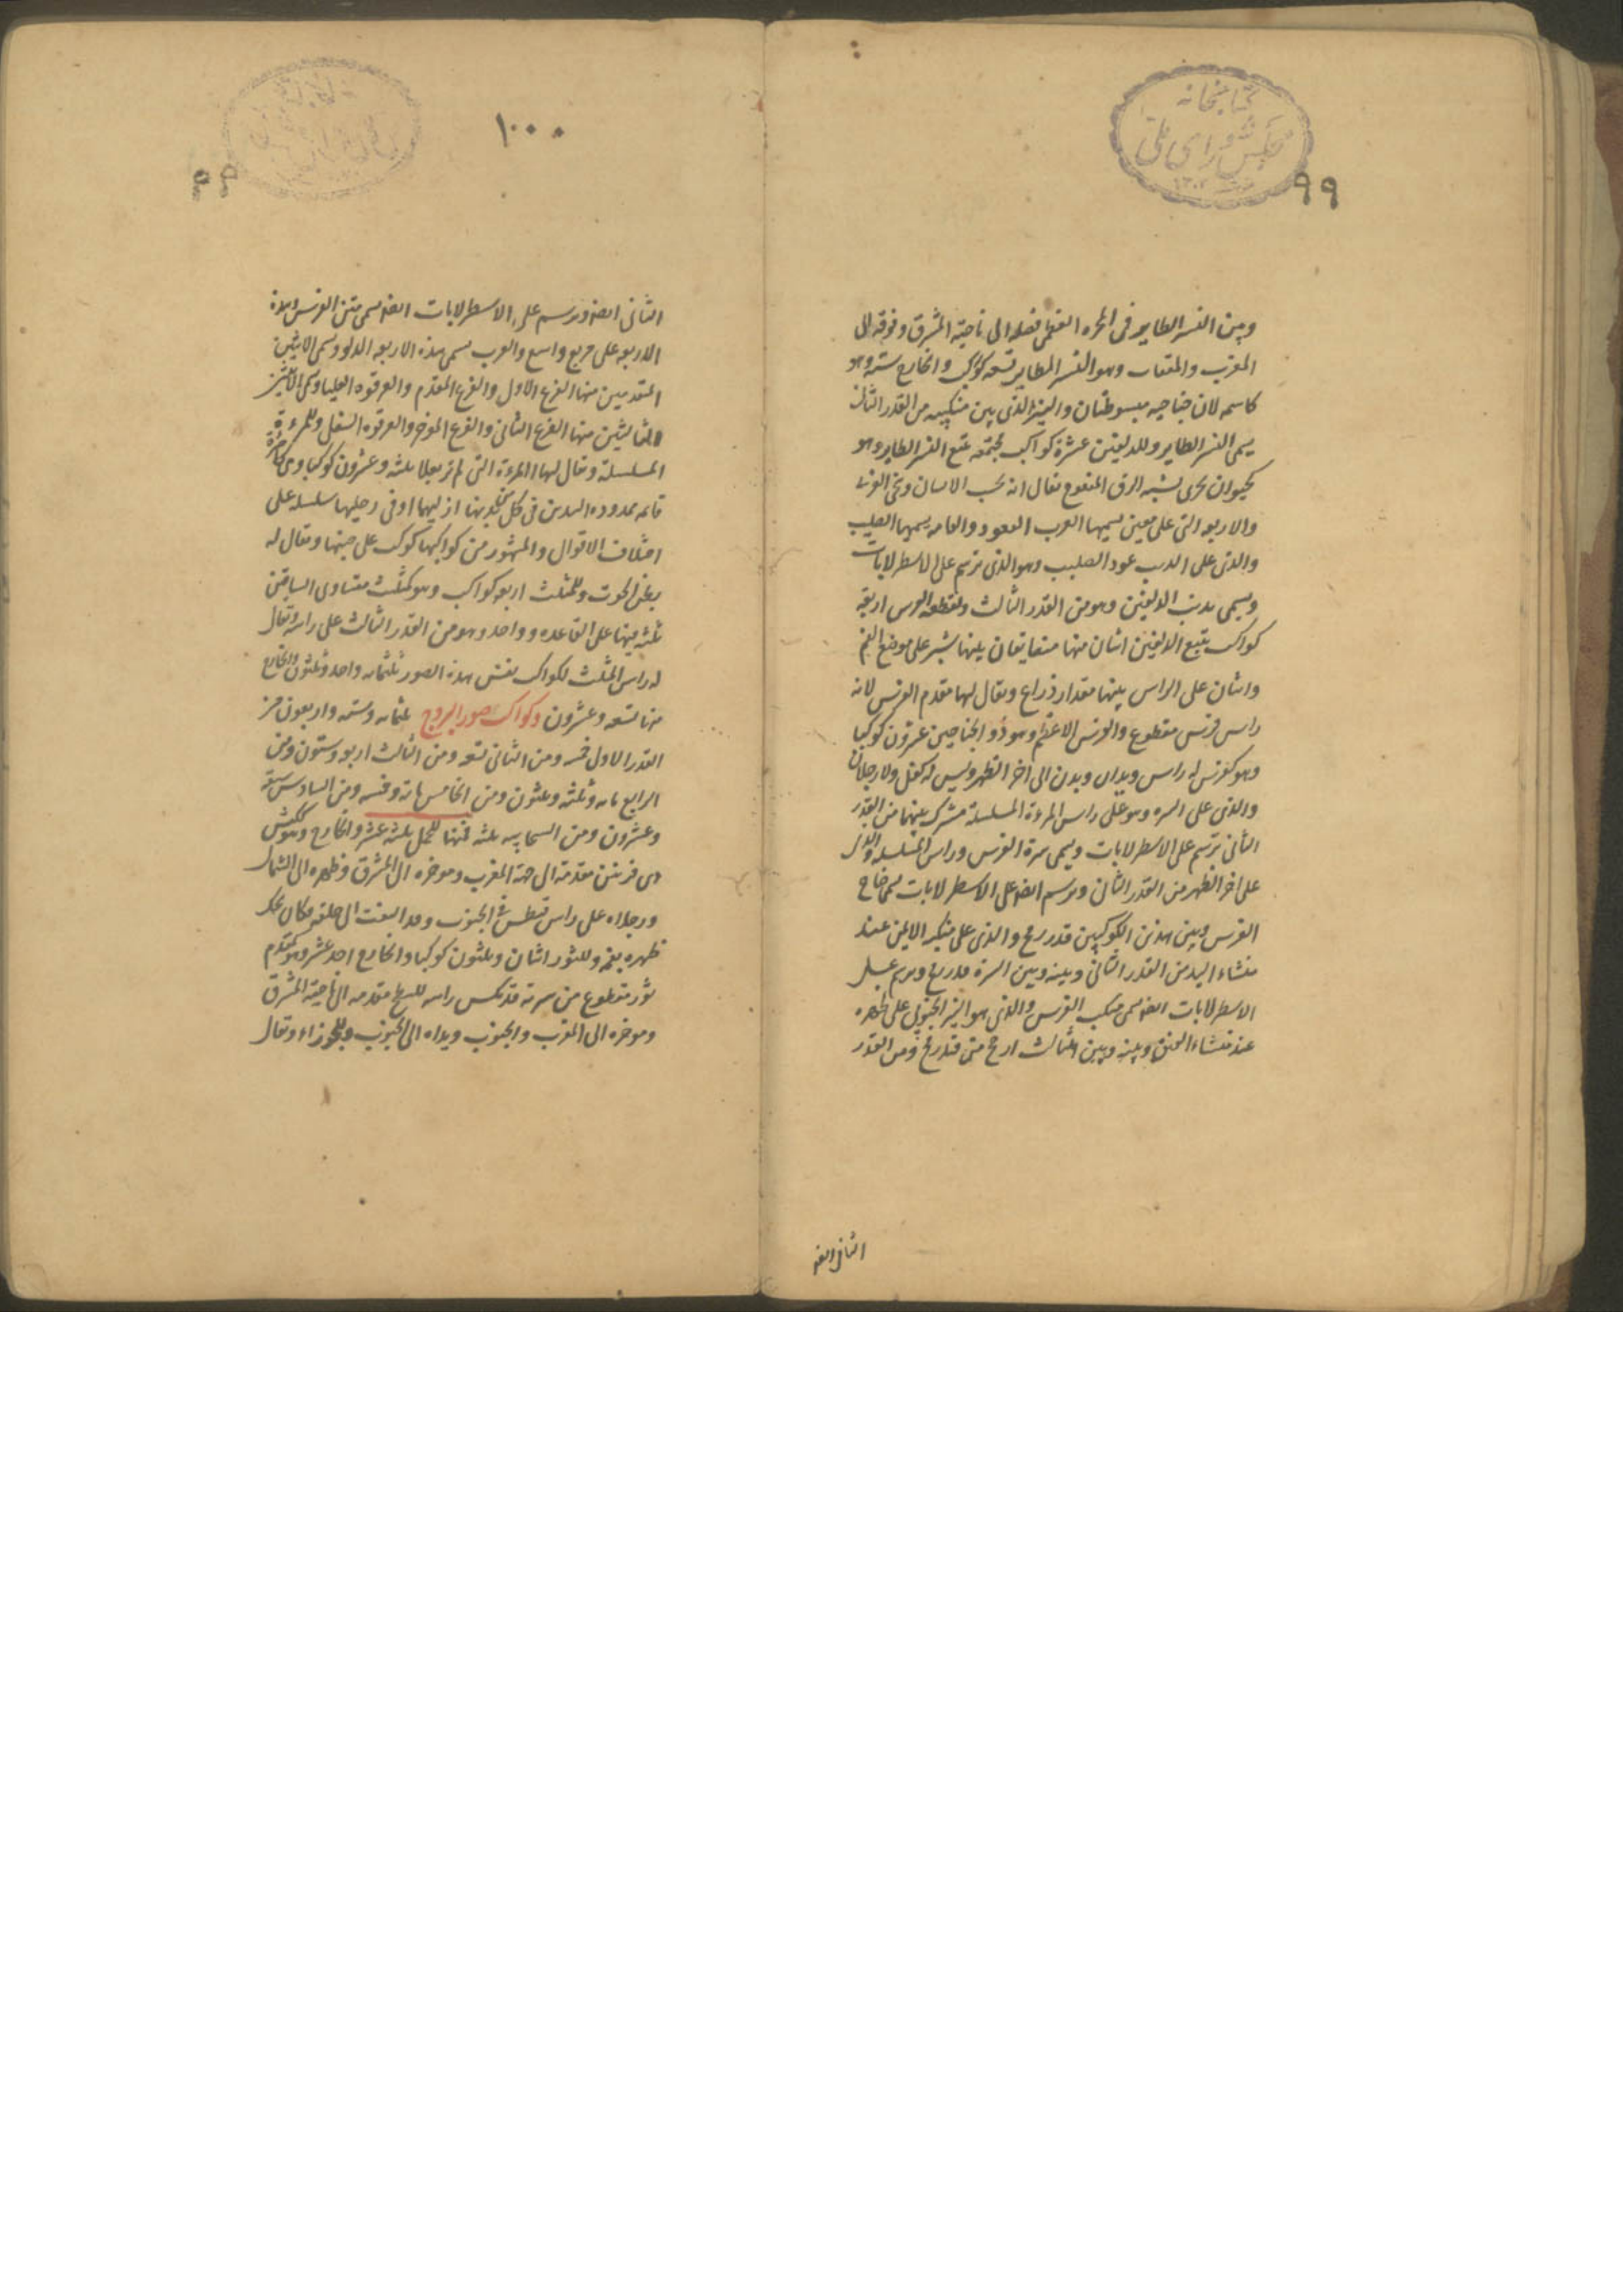 كتابخانه
مجلس شورای ملی
٩٩
وبين النسر الطاير فى المجره العظمى فصله الى ناحية المشرق وفوقه الى
المغرب والعقاب وهو النسر الطاير تسعه كوكب والخارج سته وهو
كاسمه لان جناحيه مبسوطتان والنير الذى بين منكبيه من القدر الثانى
يسمى النسر الطاير وللدلفين عشرة كواكب مجتمعه تتبع النسر الطاير وهو
كحيوان بحرى يشبه الزق المنفوخ يقال انه يحب الانسان وينجى الغرقى
والاربعه التى على معين يسميها العرب القعود والعامه يسميها الصليب
والذى على الذنب عود الصليب وهو الذى يرسم على الاسطرلابات
ويسمى بذنب الدلفين وهو من القدر الثالث ولقطعه الفرس اربعة
كواكب يتبع الدلفين اثنان منها متضايقان بينهما شبر على موضع الفم
واثنان على الراس بينهما مقدار ذراع ويقال لهما مقدم الفرس لانه
راس فرس مقطوع والفرس الاعظم وهو ذو الجناحين عشرون كوكبا
وهو كفرس له راس ويدان وبدن الى اخر الظهر وليس له كفل ولا رجلان
والذى على السره وهو على راس المرءة المسلسلة مشترك بينهما من القدر
الثانى يرسم على الاسطرلابات ويسمى سرة الفرس وراس المسلسله والذى
على اخر الظهر من القدر الثانى ويرسم ايضا على الاسطرلابات يسمى جناح
الفرس وبين هذين الكوكبين قدر رمح والذى على منكبه الايمن عند
منشاء اليد من القدر الثانى وبينه وبين السرة قدر رمح ويرسم على
الاسطرلابات ايضا يسمى منكب الفرس والذى هو النير الجنوبى على ظهره
عند منشاء العنق وبينه وبين الثالث ارجح من قدر رمح ومن القدر
الثانى ايضا
١٠٠
الثانى ايضا ويرسم على الاسطرلابات ايضا يسمى متن الفرس وهذه
الاربعه على مربع واسع والعرب يسمى هذه الاربعه الدلو ويسمى الاثنين
المتقدمين منها الفرغ الاول والفرغ المقدم والعرقوه العليا ويسمى الاثنين
التاليين منها الفرغ الثانى والفرغ الموخر والعرقوه السفلى وللمرءة
المسلسلة ويقال لها المرءة التى لم تر بعلا ثلثه وعشرون كوكبا وهى كامرءة
قائمه ممدوده اليدين فى كل يديها او فى رجليها سلسله على
اختلاف الاقوال والمشهور من كواكبها كوكب على جنبها ويقال له
بطن الحوت وللمثلث اربعه كواكب وهو كمثلث متساوى الساقين
ثلثه منها على القاعده وواحد وهو من القدر الثالث على راسه ويقال
له راس المثلث لكواكب نفس هذه الصور ثلثمائه واحد وثلثون والخارج
منها تسعه وعشرون وكواكب صور البروج ثلثمائه وسته واربعون من
القدر الاول خمسه ومن الثانى تسعه ومن الثالث اربعه وستون ومن
الرابع مائه وثلثه وثلثون ومن الخامس مائة وخمسه ومن السادس سبعة
وعشرون ومن السحابيه ثلثه فمنها للحمل ثلثة عشر والخارج وهو ككبش
ذى قرنين مقدمة الى جهة المغرب وموخره الى المشرق وظهره الى الشمال
ورجلاه على راس قيطس فى الجنوب وقد التفت الى خلفه فكان يحك
ظهره بفمه وللثور اثنان وثلثون كوكبا والخارج احد عشر وهو كمقدم
ثور مقطوع من سرته قد نكس راسه للنطح مقدمه الى ناحية المشرق
وموخره الى المغرب والجنوب ويداه الى الجنوب وللجوزاء ويقال